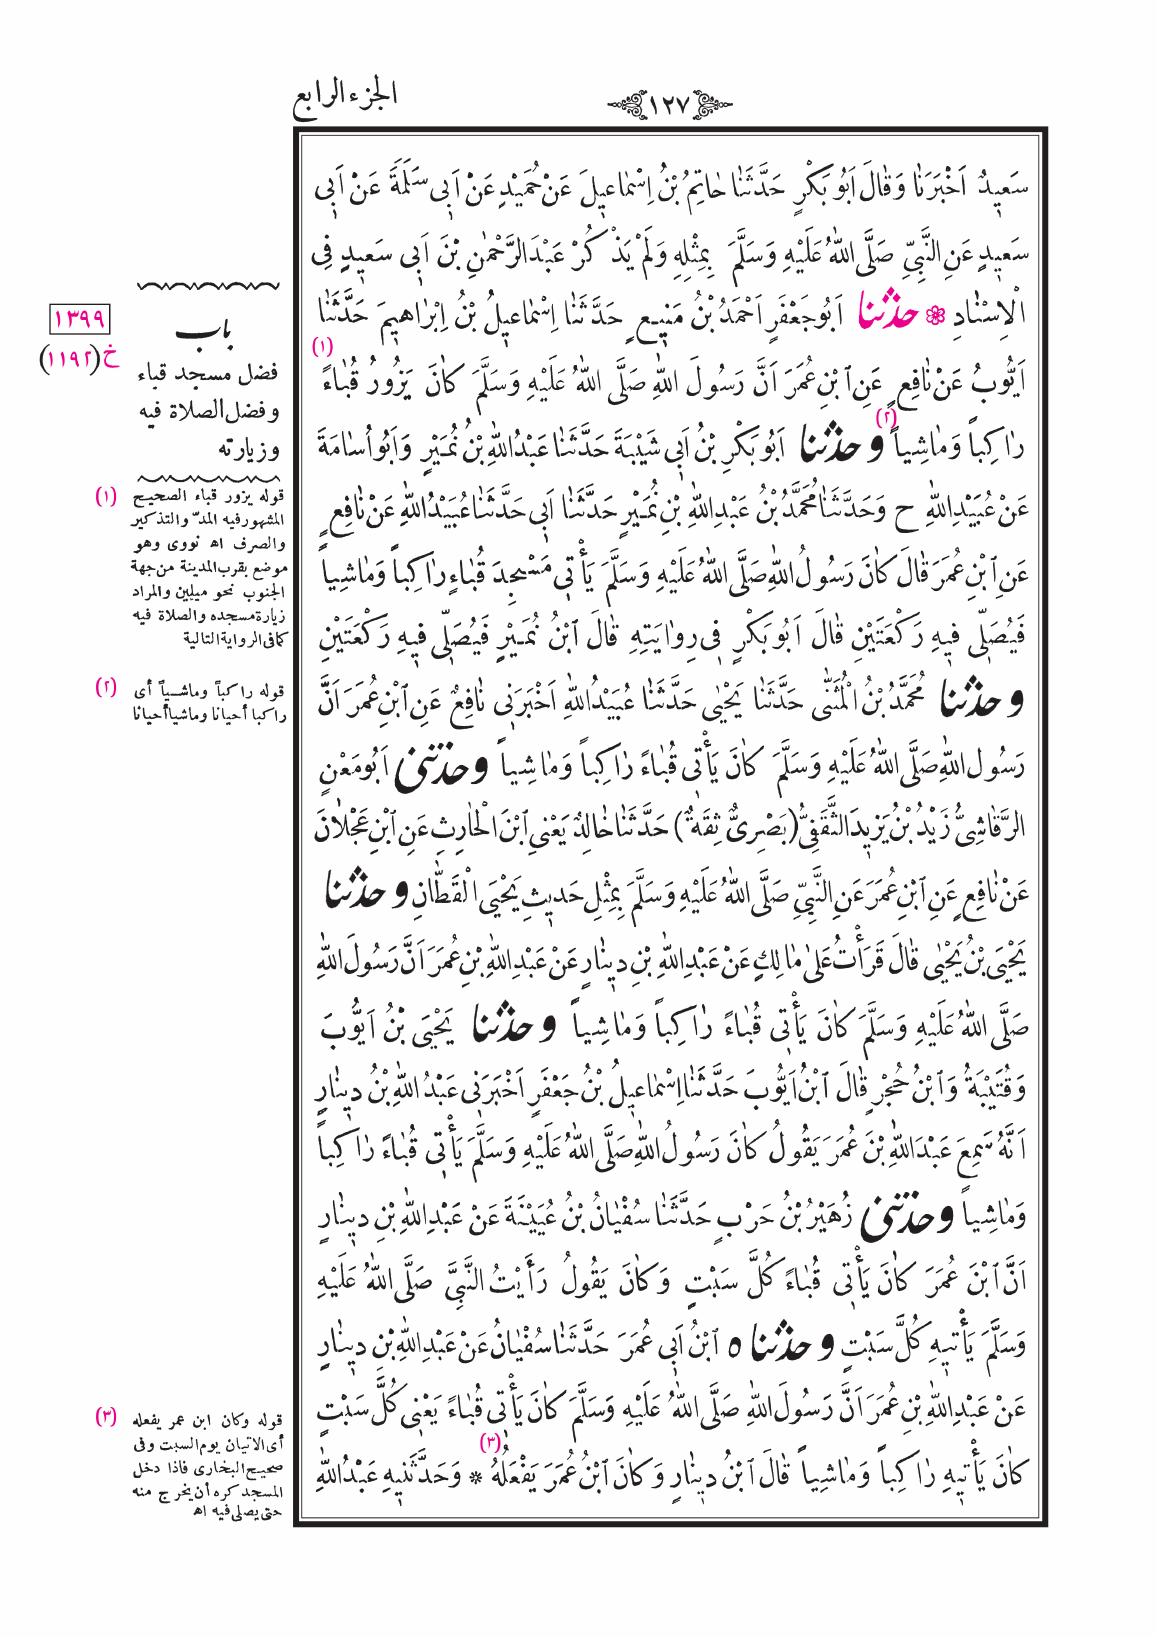 الجزء الرابع
١٢٧
سَعِيدٌ اَخْبَرَنَا وَقَالَ اَبُو بَكْرٍ حَدَّثَنَا حَاتِمُ بْنُ اِسْمَاعِيلَ عَنْ حُمَيْدٍ عَنْ اَبِى سَلَمَةَ عَنْ اَبِى
سَعِيدٍ عَنِ النَّبِيِّ صَلَّى اللهُ عَلَيْهِ وَسَلَّمَ بِمِثْلِهِ وَلَمْ يَذْكُرْ عَبْدَ الرَّحْمٰنِ بْنَ اَبِى سَعِيدٍ فِى
الْاِسْنَادِ ۞ حدثنا اَبُو جَعْفَرٍ اَحْمَدُ بْنُ مَنِيعٍ حَدَّثَنَا اِسْمَاعِيلُ بْنُ اِبْرَاهِيمَ حَدَّثَنَا
اَيُّوبُ عَنْ نَافِعٍ عَنِ ابْنِ عُمَرَ اَنَّ رَسُولَ اللهِ صَلَّى اللهُ عَلَيْهِ وَسَلَّمَ كَانَ يَزُورُ قُبَاءً (١)
رَاكِباً وَمَاشِياً (٢) وحدثنا اَبُو بَكْرِ بْنُ اَبِى شَيْبَةَ حَدَّثَنَا عَبْدُ اللهِ بْنُ نُمَيْرٍ وَاَبُو اُسَامَةَ
عَنْ عُبَيْدِ اللهِ ح وَحَدَّثَنَا مُحَمَّدُ بْنُ عَبْدِ اللهِ بْنِ نُمَيْرٍ حَدَّثَنَا اَبِى حَدَّثَنَا عُبَيْدُ اللهِ عَنْ نَافِعٍ
عَنِ ابْنِ عُمَرَ قَالَ كَانَ رَسُولُ اللهِ صَلَّى اللهُ عَلَيْهِ وَسَلَّمَ يَأْتِى مَسْجِدَ قُبَاءٍ رَاكِباً وَمَاشِياً
فَيُصَلِّى فِيهِ رَكْعَتَيْنِ قَالَ اَبُو بَكْرٍ فِى رِوَايَتِهِ قَالَ ابْنُ نُمَيْرٍ فَيُصَلِّى فِيهِ رَكْعَتَيْنِ
وحدثنا مُحَمَّدُ بْنُ الْمُثَنَّى حَدَّثَنَا يَحْيٰى حَدَّثَنَا عُبَيْدُ اللهِ اَخْبَرَنِى نَافِعٌ عَنِ ابْنِ عُمَرَ اَنَّ
رَسُولَ اللهِ صَلَّى اللهُ عَلَيْهِ وَسَلَّمَ كَانَ يَأْتِى قُبَاءً رَاكِباً وَمَاشِياً وحدثنى اَبُو مَعْنٍ
الرَّقَاشِىُّ زَيْدُ بْنُ يَزِيدَ الثَّقَفِىُّ (بَصْرِىٌّ ثِقَةٌ) حَدَّثَنَا خَالِدٌ يَعْنِى ابْنَ الْحَارِثِ عَنِ ابْنِ عَجْلَانَ
عَنْ نَافِعٍ عَنِ ابْنِ عُمَرَ عَنِ النَّبِيِّ صَلَّى اللهُ عَلَيْهِ وَسَلَّمَ بِمِثْلِ حَدِيثِ يَحْيَى الْقَطَّانِ وحدثنا
يَحْيَى بْنُ يَحْيٰى قَالَ قَرَأْتُ عَلٰى مَالِكٍ عَنْ عَبْدِ اللهِ بْنِ دِينَارٍ عَنْ عَبْدِ اللهِ بْنِ عُمَرَ اَنَّ رَسُولَ اللهِ
صَلَّى اللهُ عَلَيْهِ وَسَلَّمَ كَانَ يَأْتِى قُبَاءً رَاكِباً وَمَاشِياً وحدثنا يَحْيَى بْنُ اَيُّوبَ
وَقُتَيْبَةُ وَابْنُ حُجْرٍ قَالَ ابْنُ اَيُّوبَ حَدَّثَنَا اِسْمَاعِيلُ بْنُ جَعْفَرٍ اَخْبَرَنِى عَبْدُ اللهِ بْنُ دِينَارٍ
اَنَّهُ سَمِعَ عَبْدَ اللهِ بْنَ عُمَرَ يَقُولُ كَانَ رَسُولُ اللهِ صَلَّى اللهُ عَلَيْهِ وَسَلَّمَ يَأْتِى قُبَاءً رَاكِباً
وَمَاشِياً وحدثنى زُهَيْرُ بْنُ حَرْبٍ حَدَّثَنَا سُفْيَانُ بْنُ عُيَيْنَةَ عَنْ عَبْدِ اللهِ بْنِ دِينَارٍ
اَنَّ ابْنَ عُمَرَ كَانَ يَأْتِى قُبَاءً كُلَّ سَبْتٍ وَكَانَ يَقُولُ رَأَيْتُ النَّبِيَّ صَلَّى اللهُ عَلَيْهِ
وَسَلَّمَ يَأْتِيهِ كُلَّ سَبْتٍ وحدثنا ه ابْنُ اَبِى عُمَرَ حَدَّثَنَا سُفْيَانُ عَنْ عَبْدِ اللهِ بْنِ دِينَارٍ
عَنْ عَبْدِ اللهِ بْنِ عُمَرَ اَنَّ رَسُولَ اللهِ صَلَّى اللهُ عَلَيْهِ وَسَلَّمَ كَانَ يَأْتِى قُبَاءً يَعْنِى كُلَّ سَبْتٍ
كَانَ يَأْتِيهِ رَاكِباً وَمَاشِياً قَالَ ابْنُ دِينَارٍ وَكَانَ ابْنُ عُمَرَ يَفْعَلُهُ (٣) * وَحَدَّثَنِيهِ عَبْدُ اللهِ
١٣٩٩
خ (١١٩٢)
باب
فضل مسجد قباء
وفضل الصلاة فيه
وزيارته
(١) قوله يزور قباء الصحيح
المشهور فيه المدّ والتذكير
والصرف اه نووى وهو
موضع بقرب المدينة من جهة
الجنوب نحو ميلين والمراد
زيارة مسجده والصلاة فيه
كما فى الرواية التالية
(٢) قوله راكباً وماشياً أى
راكبا أحيانا وماشيا أحيانا
(٣) قوله وكان ابن عمر يفعله
أى الاتيان يوم السبت وفى
صحيح البخارى فاذا دخل
المسجد كره أن يخرج منه
حتى يصلى فيه اه